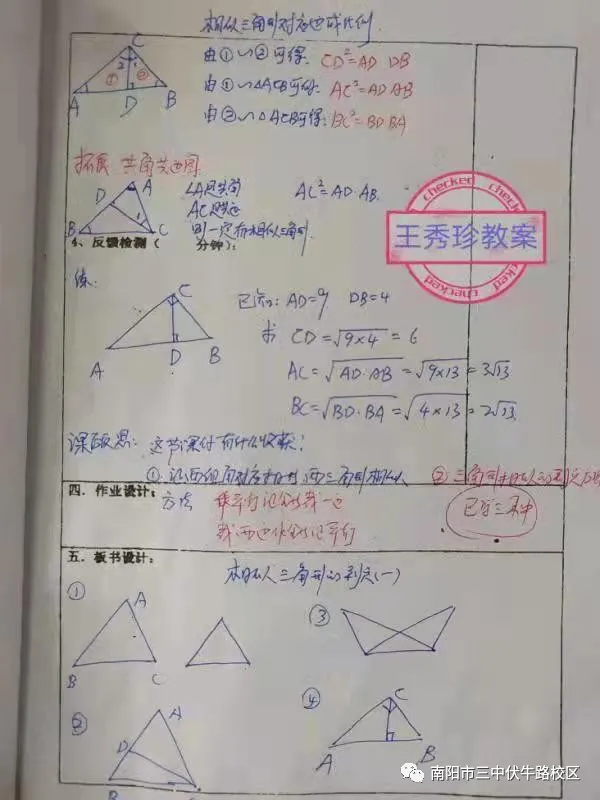 相似三角形对应边成比例
由①∽②可得: CD²=AD DB
由①∽△ACB可得: AC²=AD AB
由②∽△ACB可得: BC²=BD BA
C
2 1
① ②
A D B
拓展 共角共边图
∠A是共角 AC²=AD·AB.
AC是共边
则一定有相似三角形.
A
D
1
B C
checked
王秀珍教案
checked
4、反馈检测( 分钟):
练:
已知: AD=9 DB=4
求 CD=√9×4=6
AC=√AD·AB=√9×13=3√13
BC=√BD·BA=√4×13=2√13.
C
A D B
课反思: 这节课你有什么收获?
① 两组角对应相等 两三角形相似 ② 三角形相似的判定方法
四. 作业设计: 方法
已学三种
五. 板书设计:
相似三角形的判定(一)
①
A
B C
③
②
A
D
B C
④
C
A B
南阳市三中伏牛路校区